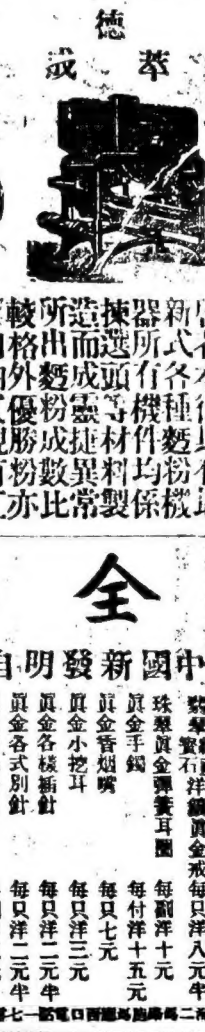 萃德成
新式各種麪粉機
器所有機件均係
揀選頭等材料製
造而成靈捷異常
所出麪粉成數比
較格外優勝粉亦
全
中國新發明自
寶石洋鑲眞金戒 每只洋八元半
珠翠眞金彈簧耳圈 每副洋十元
眞金手鐲 每付洋十五元
眞金香烟嘴 每只七元
眞金小挖耳 每只洋三元
眞金各樣插針 每只洋二元半
眞金各式別針 每只洋二元半
西口電話一七